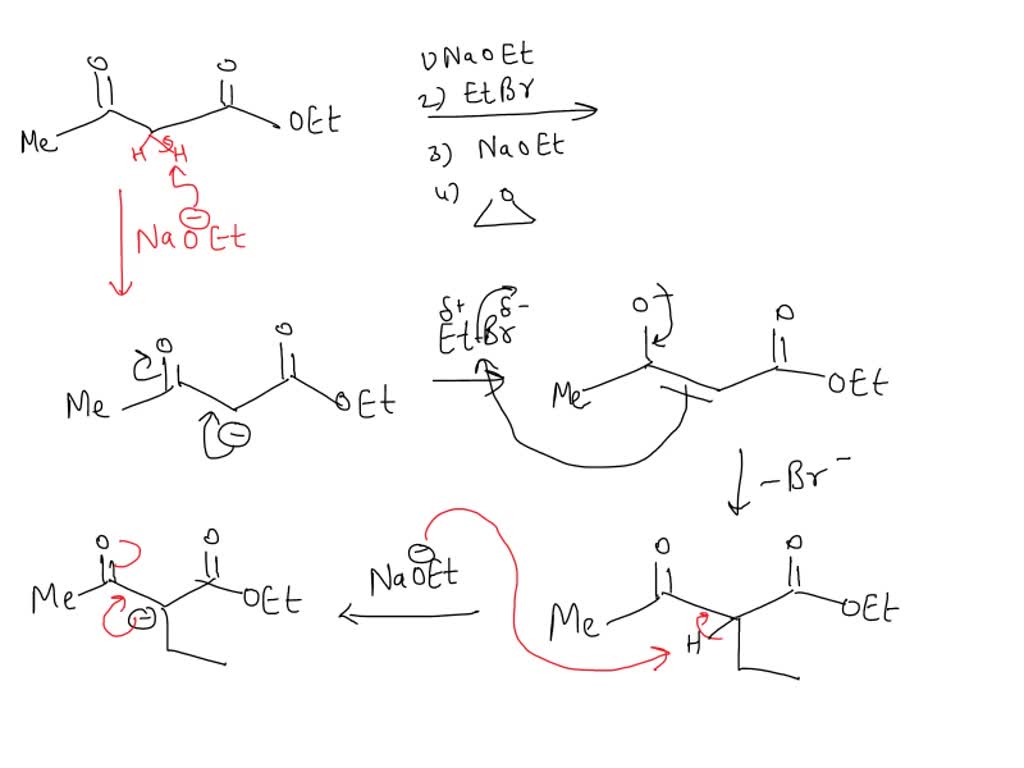 O O
Me OEt
H H
1) NaOEt
2) EtBr
3) NaOEt
4) O
NaOEt
O O
Me OEt
δ+ δ-
Et-Br
O O
Me OEt
-Br-
O O
Me OEt
H
NaOEt
O O
Me OEt